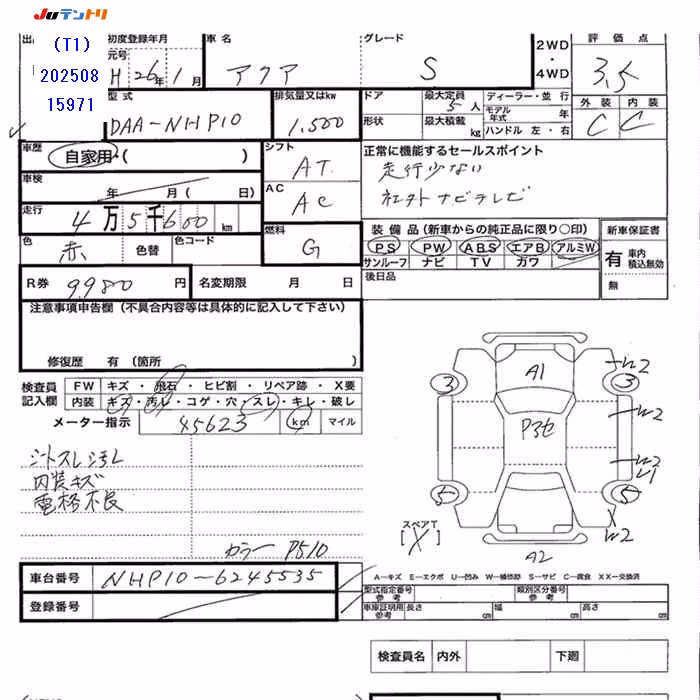 JUテントリ
(T1)
202508
15971
出
初度登録年月
元号
H 26年 1月
車名
アクア
グレード
S
2WD
・
4WD
評価点
3.5
外装
内装
C
C
型式
DAA-NHP10
排気量又はkw
1,500
ドア
形状
最大定員
5人
最大積載
kg
ディーラー・並行
モデル年式
年
ハンドル 左・右
車歴
自家用・(　　)
車検
年　月(　日)
走行
4万5千600km
色
赤
色替
色コード
シフト
AT
AC
AC
燃料
G
正常に機能するセールスポイント
走行少ない
社外ナビテレビ
装備品(新車からの純正品に限り○印)
PS PW ABS エアB アルミW
サンルーフ ナビ TV カワ
後日品
新車保証書
有
車内積込無効
無
R券
9980円
名変期限　月　日
注意事項申告欄(不具合内容等は具体的に記入して下さい)
修復歴　有(箇所　　)
検査員
記入欄
FW キズ・飛石・ヒビ割・リペア跡・X要
内装 キズ・汚レ・コゲ・穴・スレ・キレ・破レ
メーター指示
45623
km
マイル
シートスレ汚レ
内装キズ
電格不良
カラー P510
車台番号
NHP10-6245535
登録番号
A1
W2
3
3
W2
Pヨセ
W2
W1
5
5
X
W2
スペアT
[X]
A2
A―キズ E―エクボ U―凹み W―補修跡 S―サビ C―腐食 XX―交換済
型式指定番号
参考
類別区分番号
参考
車庫証明用
参考
長さ cm
幅 cm
高さ cm
検査員名
内外
下廻